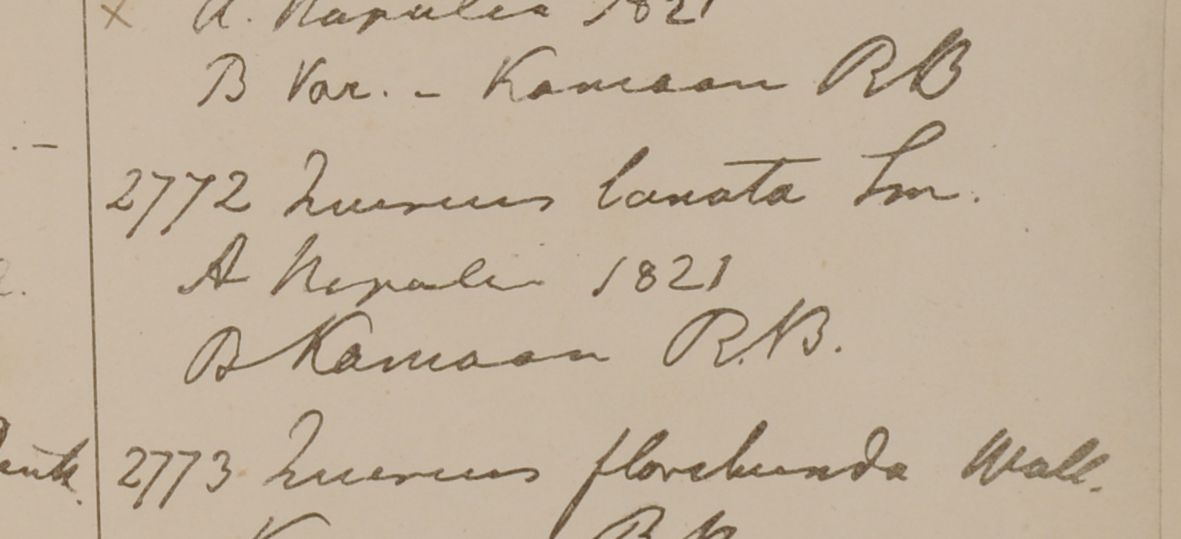 x A. Napalia 1821
B Var. - Kamaon RB
2772 Quercus lanata Sm.
A Nepalia 1821
B Kamaon R.B.
2773 Quercus floribunda Wall.